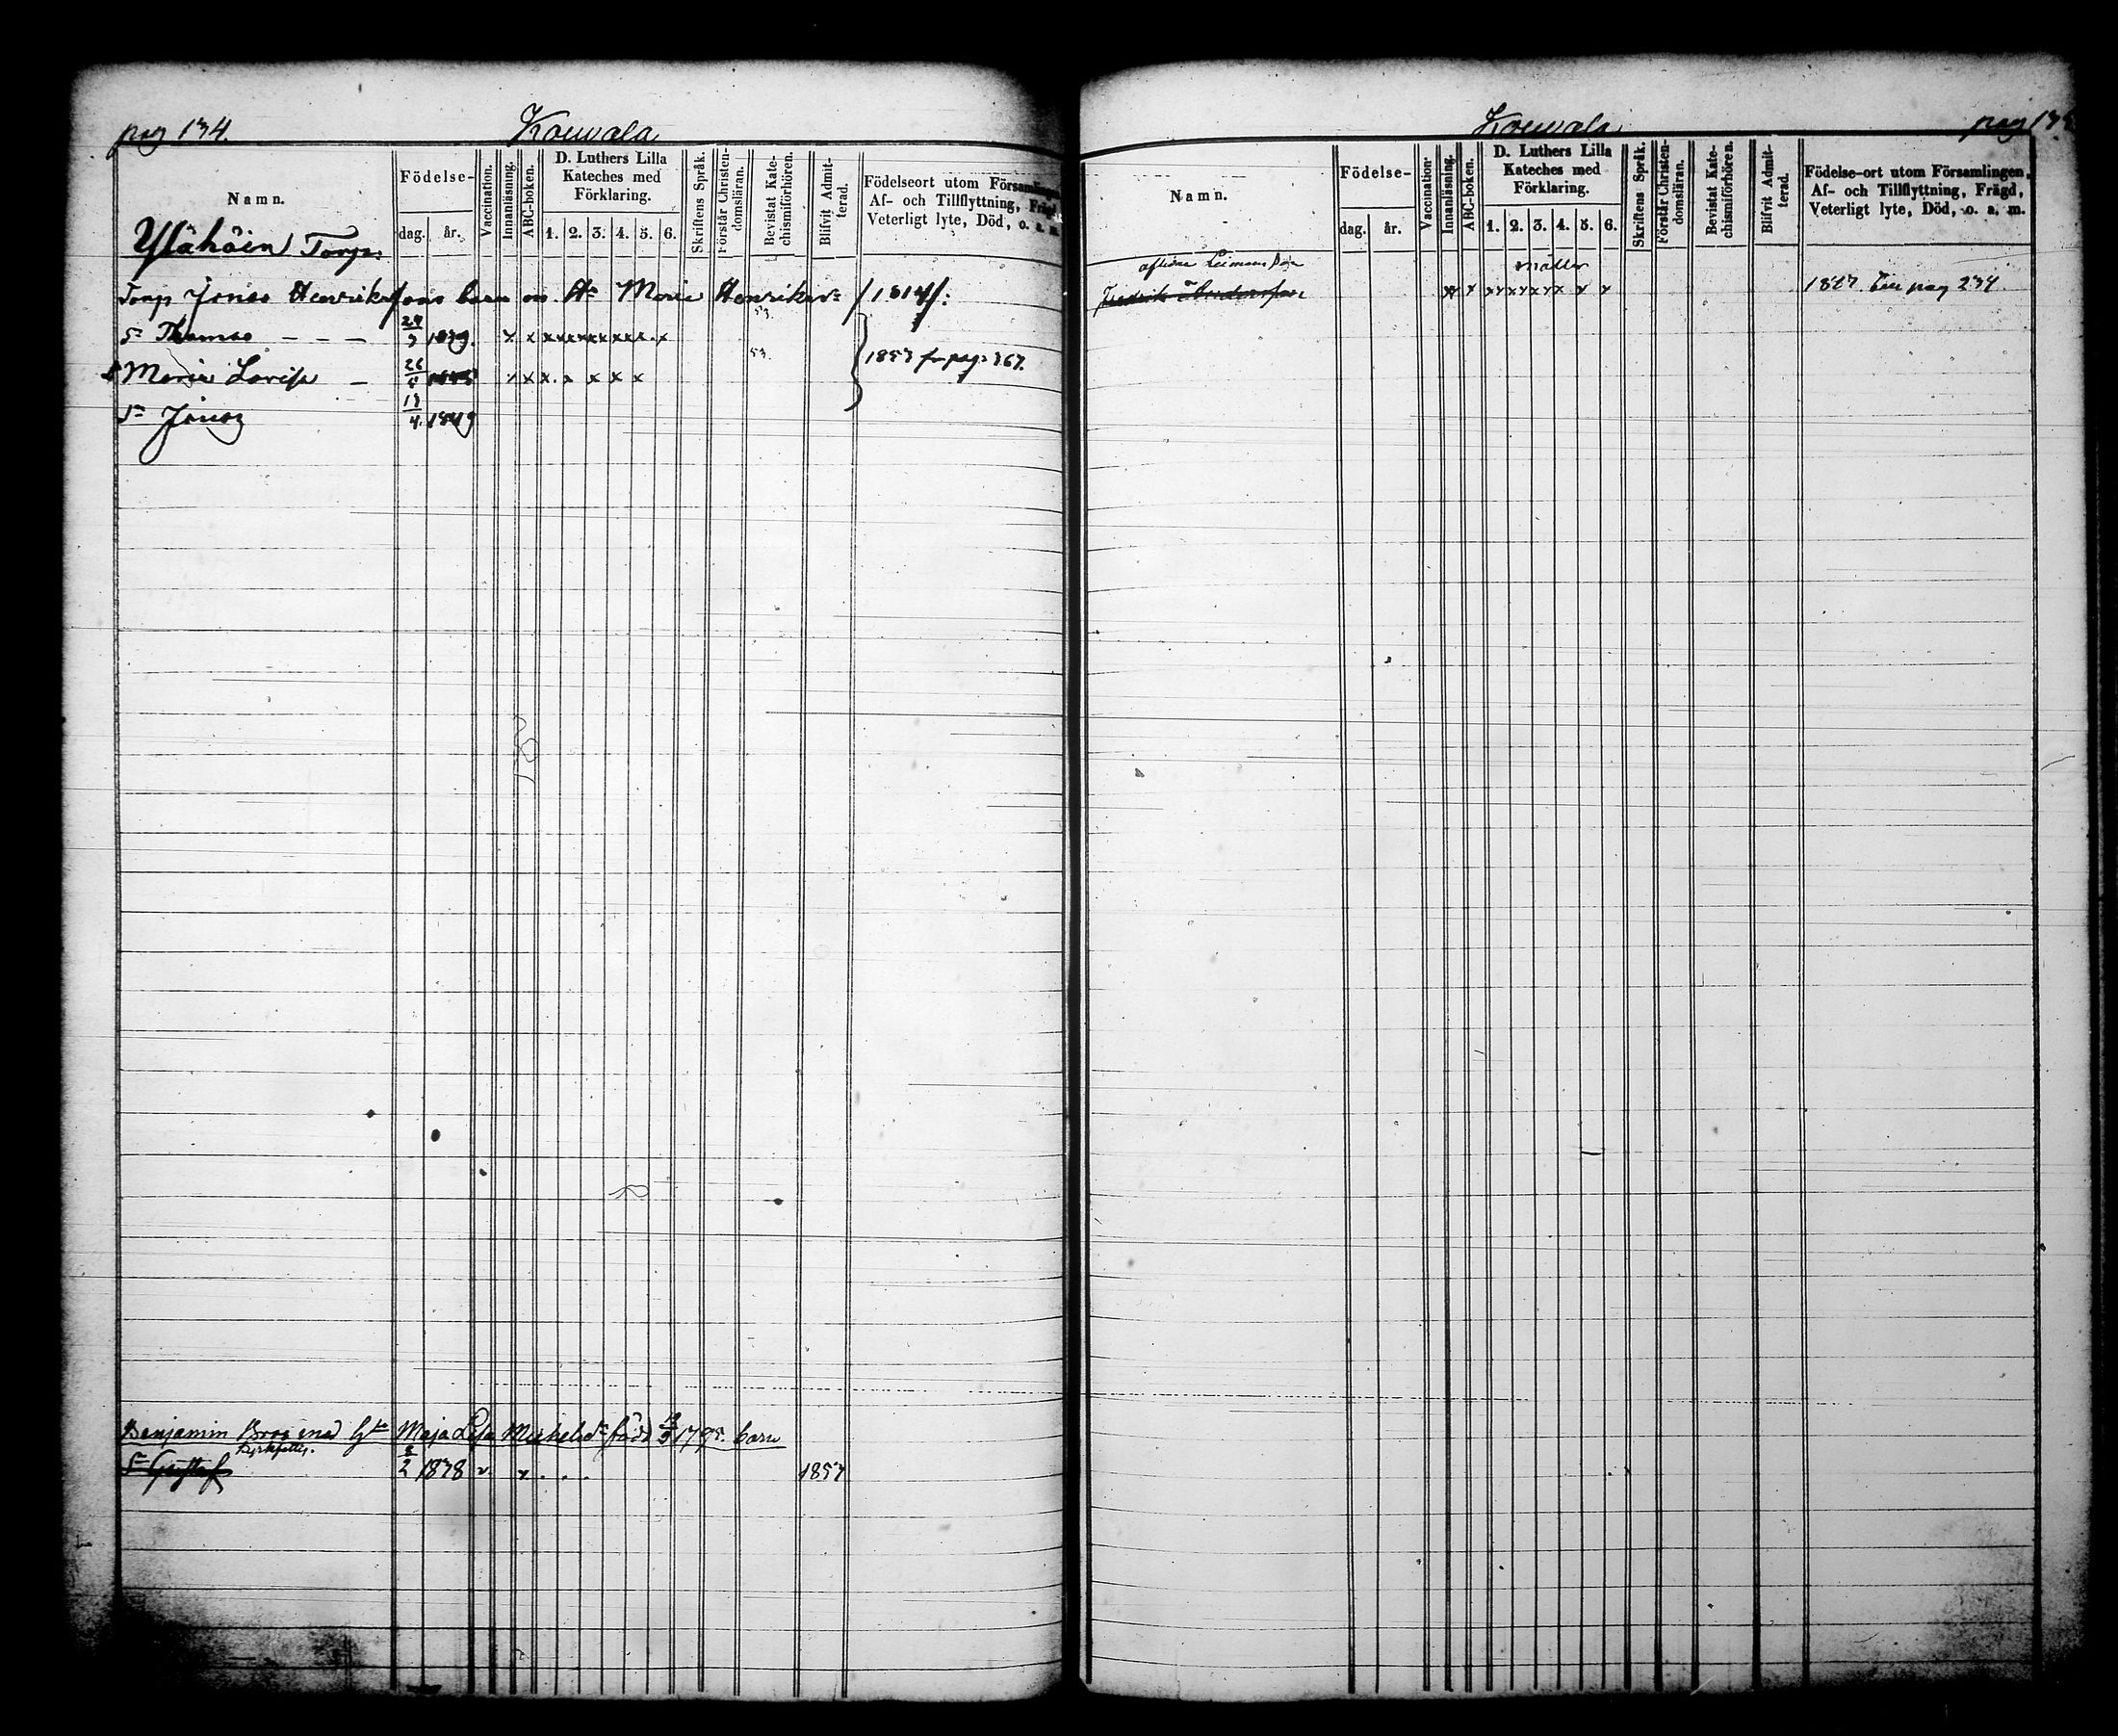 pag 134.
Kouvala
Namn.
Födelse-
dag. år.
Vaccination.
Innanläsning.
ABC-boken.
D. Luthers Lilla Kateches med Förklaring.
1. 2. 3. 4. 5. 6.
Skriftens Språk.
Förstår Christendomsläran.
Bevistat Katechismiförhören.
Blifvit Admitterad.
Födelseort utom Församlingen,
Af- och Tillflyttning, Frägd,
Veterligt lyte, Död, o. a. m.
Ylähöin Torp:
Torp Jonas Henrikssons barn m. H:u Maria Henriksd:r /1814/:
S:n Thomas – – – 24/7 1839. x x x x x x x x x x x 53.
Maria Lovisa – 26 x x x x x x x 53. 1857 fr pag: 367.
S:n Jonas 18/4. 1849
Benjamin Broo enod h:u Maja Lisa Mickelsd:r född 1795. barn
S:n Gustaf 2 1838 v. v. . . . 1857
Kouvala
pag 13
Namn.
Födelse-
dag. år.
Vaccination.
Innanläsning.
ABC-boken.
D. Luthers Lilla Kateches med Förklaring.
1. 2. 3. 4. 5. 6.
Skriftens Språk.
Förstår Christendomsläran.
Bevistat Katechismiförhören.
Blifvit Admitterad.
Födelse-ort utom Församlingen,
Af- och Tillflyttning, Frägd,
Veterligt lyte, Död, o. a. m.
Fredrik x x x x x x x x x pag 234.